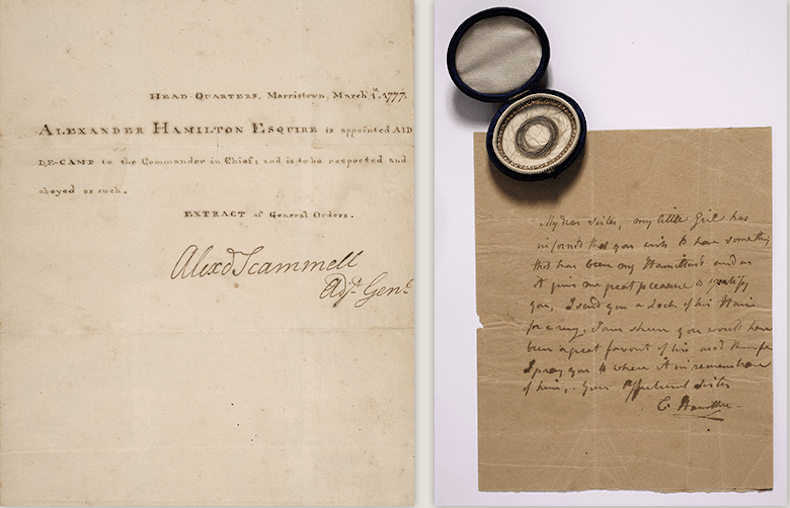 HEAD QUARTERS, Morristown, March 1st. 1777.
ALEXANDER HAMILTON ESQUIRE is appointed AID
DE-CAMP to the Commander in Chief; and is to be respected and
obeyed as such.
EXTRACT of General Orders.
Alexd Scammell
Adjt Genl
My dear Sister, my little Girl has
inform'd that you wish to have something
that has been my Hamilton's and as
it give me great pleasure to gratify
you, I send you a Lock of his Hair
for a ring, I am shure you would have
been a great favourt of his and
I pray you to where it in remembrance
of him,. Your Sister
E Hamilton